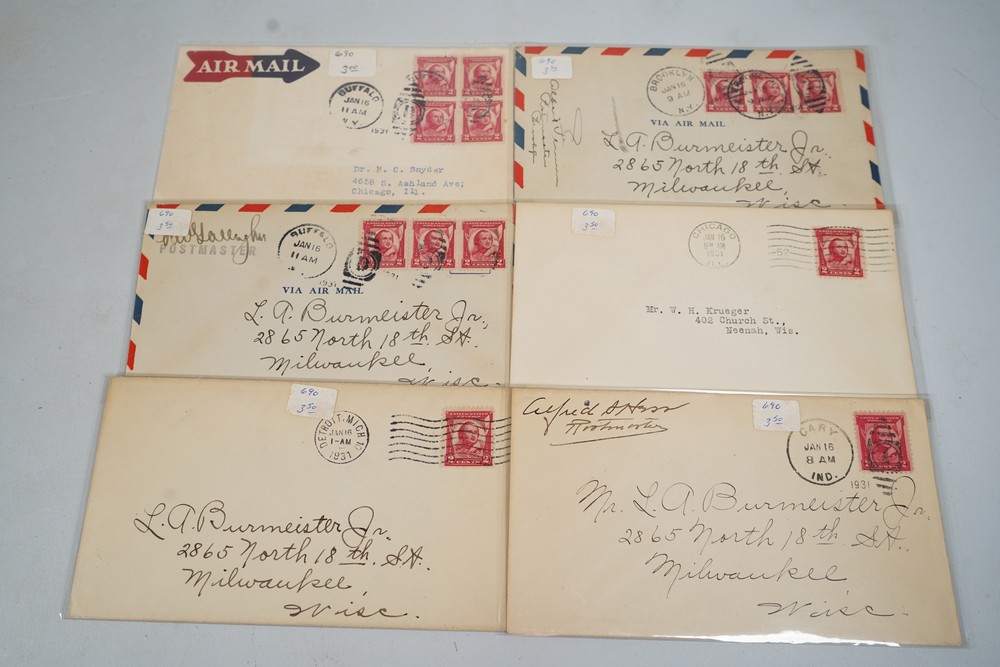 AIR MAIL
690
3 50
BUFFALO
JAN 16
11 AM
N.Y.
1931
2 CENTS 2
2 CENTS 2
Dr. H. C. Snyder
4658 S. Ashland Ave;
Chicago, Ill.
690
BROOKLYN
JAN 16
9 AM
N.Y.
VIA AIR MAIL
L. A. Burmeister Jr.
2865 North 18 th. St.
Milwaukee,
Wisc.
690
POSTMASTER
BUFFALO
JAN 16
11 AM
1931
VIA AIR MAIL
L. A. Burmeister Jr.,
2865 North 18 th. St.
Milwaukee,
Wisc.
690
3 50
CHICAGO
JAN 16
1931
ILL.
2 CENTS 2
Mr. W. H. Krueger
402 Church St.,
Neenah, Wis.
690
3 50
DETROIT, MICH.
JAN 16
1-AM
1931
2 CENTS 2
L. A. Burmeister Jr.
2865 North 18 th. St.
Milwaukee,
Wisc.
Alfred S Hess
Postmaster
690
3 50
GARY
JAN 16
8 AM
IND.
1931
Mr. L. A. Burmeister Jr.,
2865 North 18 th. St.,
Milwaukee
Wisc.